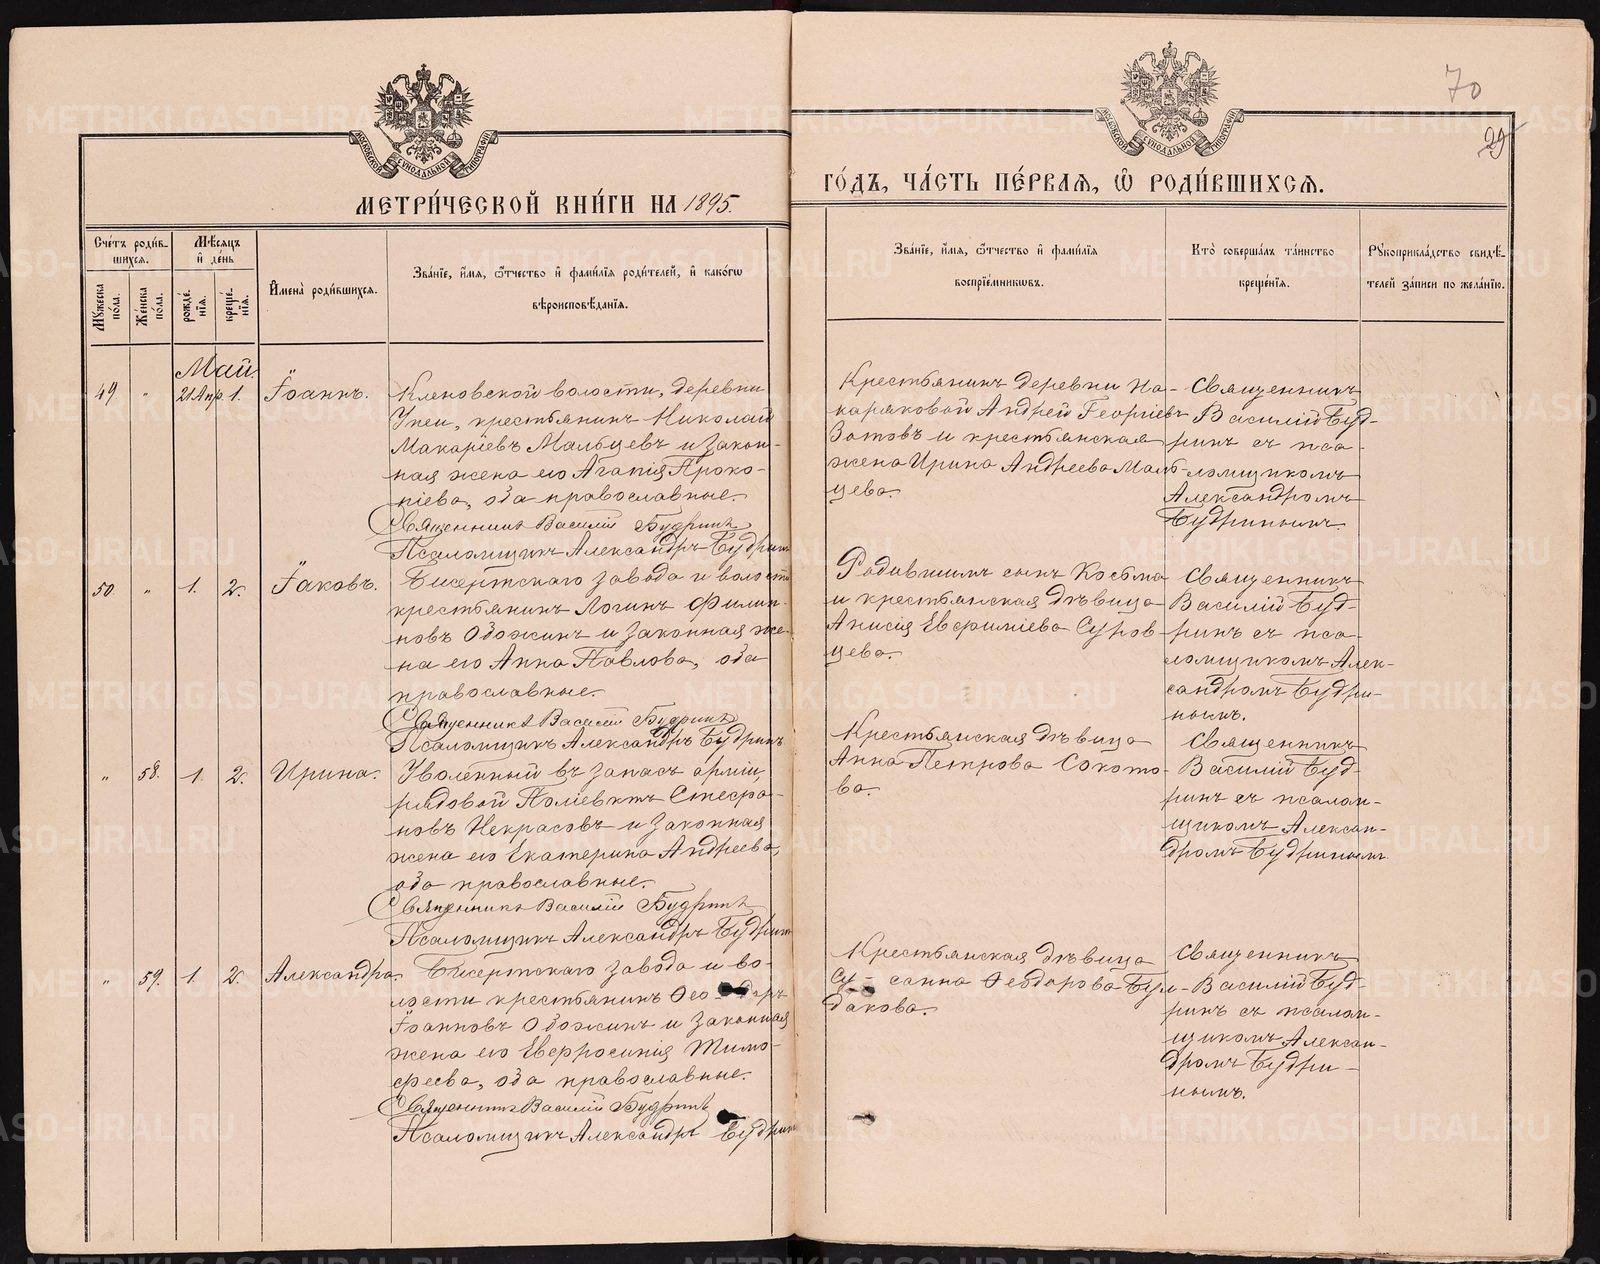 70
29
МЕТРИ́ЧЕСКОЙ КНИ́ГИ НА 1895.
ГО́ДЪ, ЧА́СТЬ ПЕ́РВАЯ, Ѽ РОДИ́ВШИХСЯ.
МОСКОВСКОЙ СѴНОДАЛЬНОЙ ТИПОГРАФІИ
МОСКОВСКОЙ СѴНОДАЛЬНОЙ ТИПОГРАФІИ
Сче́тъ роди́вшихся.
Му́жеска по́ла.
Же́нска по́ла.
Мѣ́сяцъ и де́нь
рожде́нїя.
креще́нїя.
Имена̀ роди́вшихся.
Зва́нїе, и́мя, ѻ҆́тчество и҆ фами́лїя роди́телей, и҆ како́гѡ
вѣроисповѣ́данїя.
Зва́нїе, и́мя, ѻ҆́тчество и҆ фами́лїя
воспрїе́мникѡвъ.
Кто̀ соверша́лъ та́инство
креще́нїя.
Рукоприкла́дство свидѣ́-
телей за́писи по жела́нїю.
Май.
49 " 21 Апр. 1. Іоаннъ.
Кленовской волости, деревни
Упеи, крестьянинъ Николай
Макаріевъ Мальцевъ и закон-
ная жена его Агапія Проко-
піева, оба православные.
Священникъ Василій Будринъ
Псаломщикъ Александръ Будринъ
Крестьянинъ деревни На-
каряковой Андрей Георгіевъ
Зотовъ и крестьянская
жена Ирина Андреева Маль-
цева.
Священникъ
Василій Буд-
ринъ съ пса-
ломщикомъ
Александромъ
Будринымъ.
50. " 1. 2. Іаковъ.
Бисертскаго завода и волости
крестьянинъ Логинъ Филип-
повъ Обожинъ и законная же-
на его Анна Павлова, оба
православные.
Священникъ Василій Будринъ
Псаломщикъ Александръ Будринъ
Родившимъ сынъ Косьма
и крестьянская дѣвица
Анисія Евфиміева Суров-
цева.
Священникъ
Василій Буд-
ринъ съ пса-
ломщикомъ Алек-
сандромъ Будри-
нымъ.
" 58. 1. 2. Ирина.
Уволенный въ запасъ арміи,
рядовой Поліевктъ Стефа-
новъ Некрасовъ и законная
жена его Екатерина Андреева,
оба православные.
Священникъ Василій Будринъ
Псаломщикъ Александръ Будринъ
Крестьянская дѣвица
Анна Петрова
Священникъ
Василій Буд-
ринъ съ псалом-
щикомъ Алексан-
дромъ Будринымъ
" 59. 1. 2. Александра.
Бисертскаго завода и во-
лости крестьянинъ Ѳео-доръ
Іоанновъ Обожинъ и законная
жена его Евфросинія Тимо-
феева, оба православные.
Священникъ Василій Будринъ
Псаломщикъ Александръ Будринъ
Крестьянская дѣвица
Су-санна Ѳеодорова Бул-
дакова.
Священникъ
Василій Буд-
ринъ съ псалом-
щикомъ Алексан-
дромъ Будри-
нымъ.
METRIKI.GASO-URAL.RU